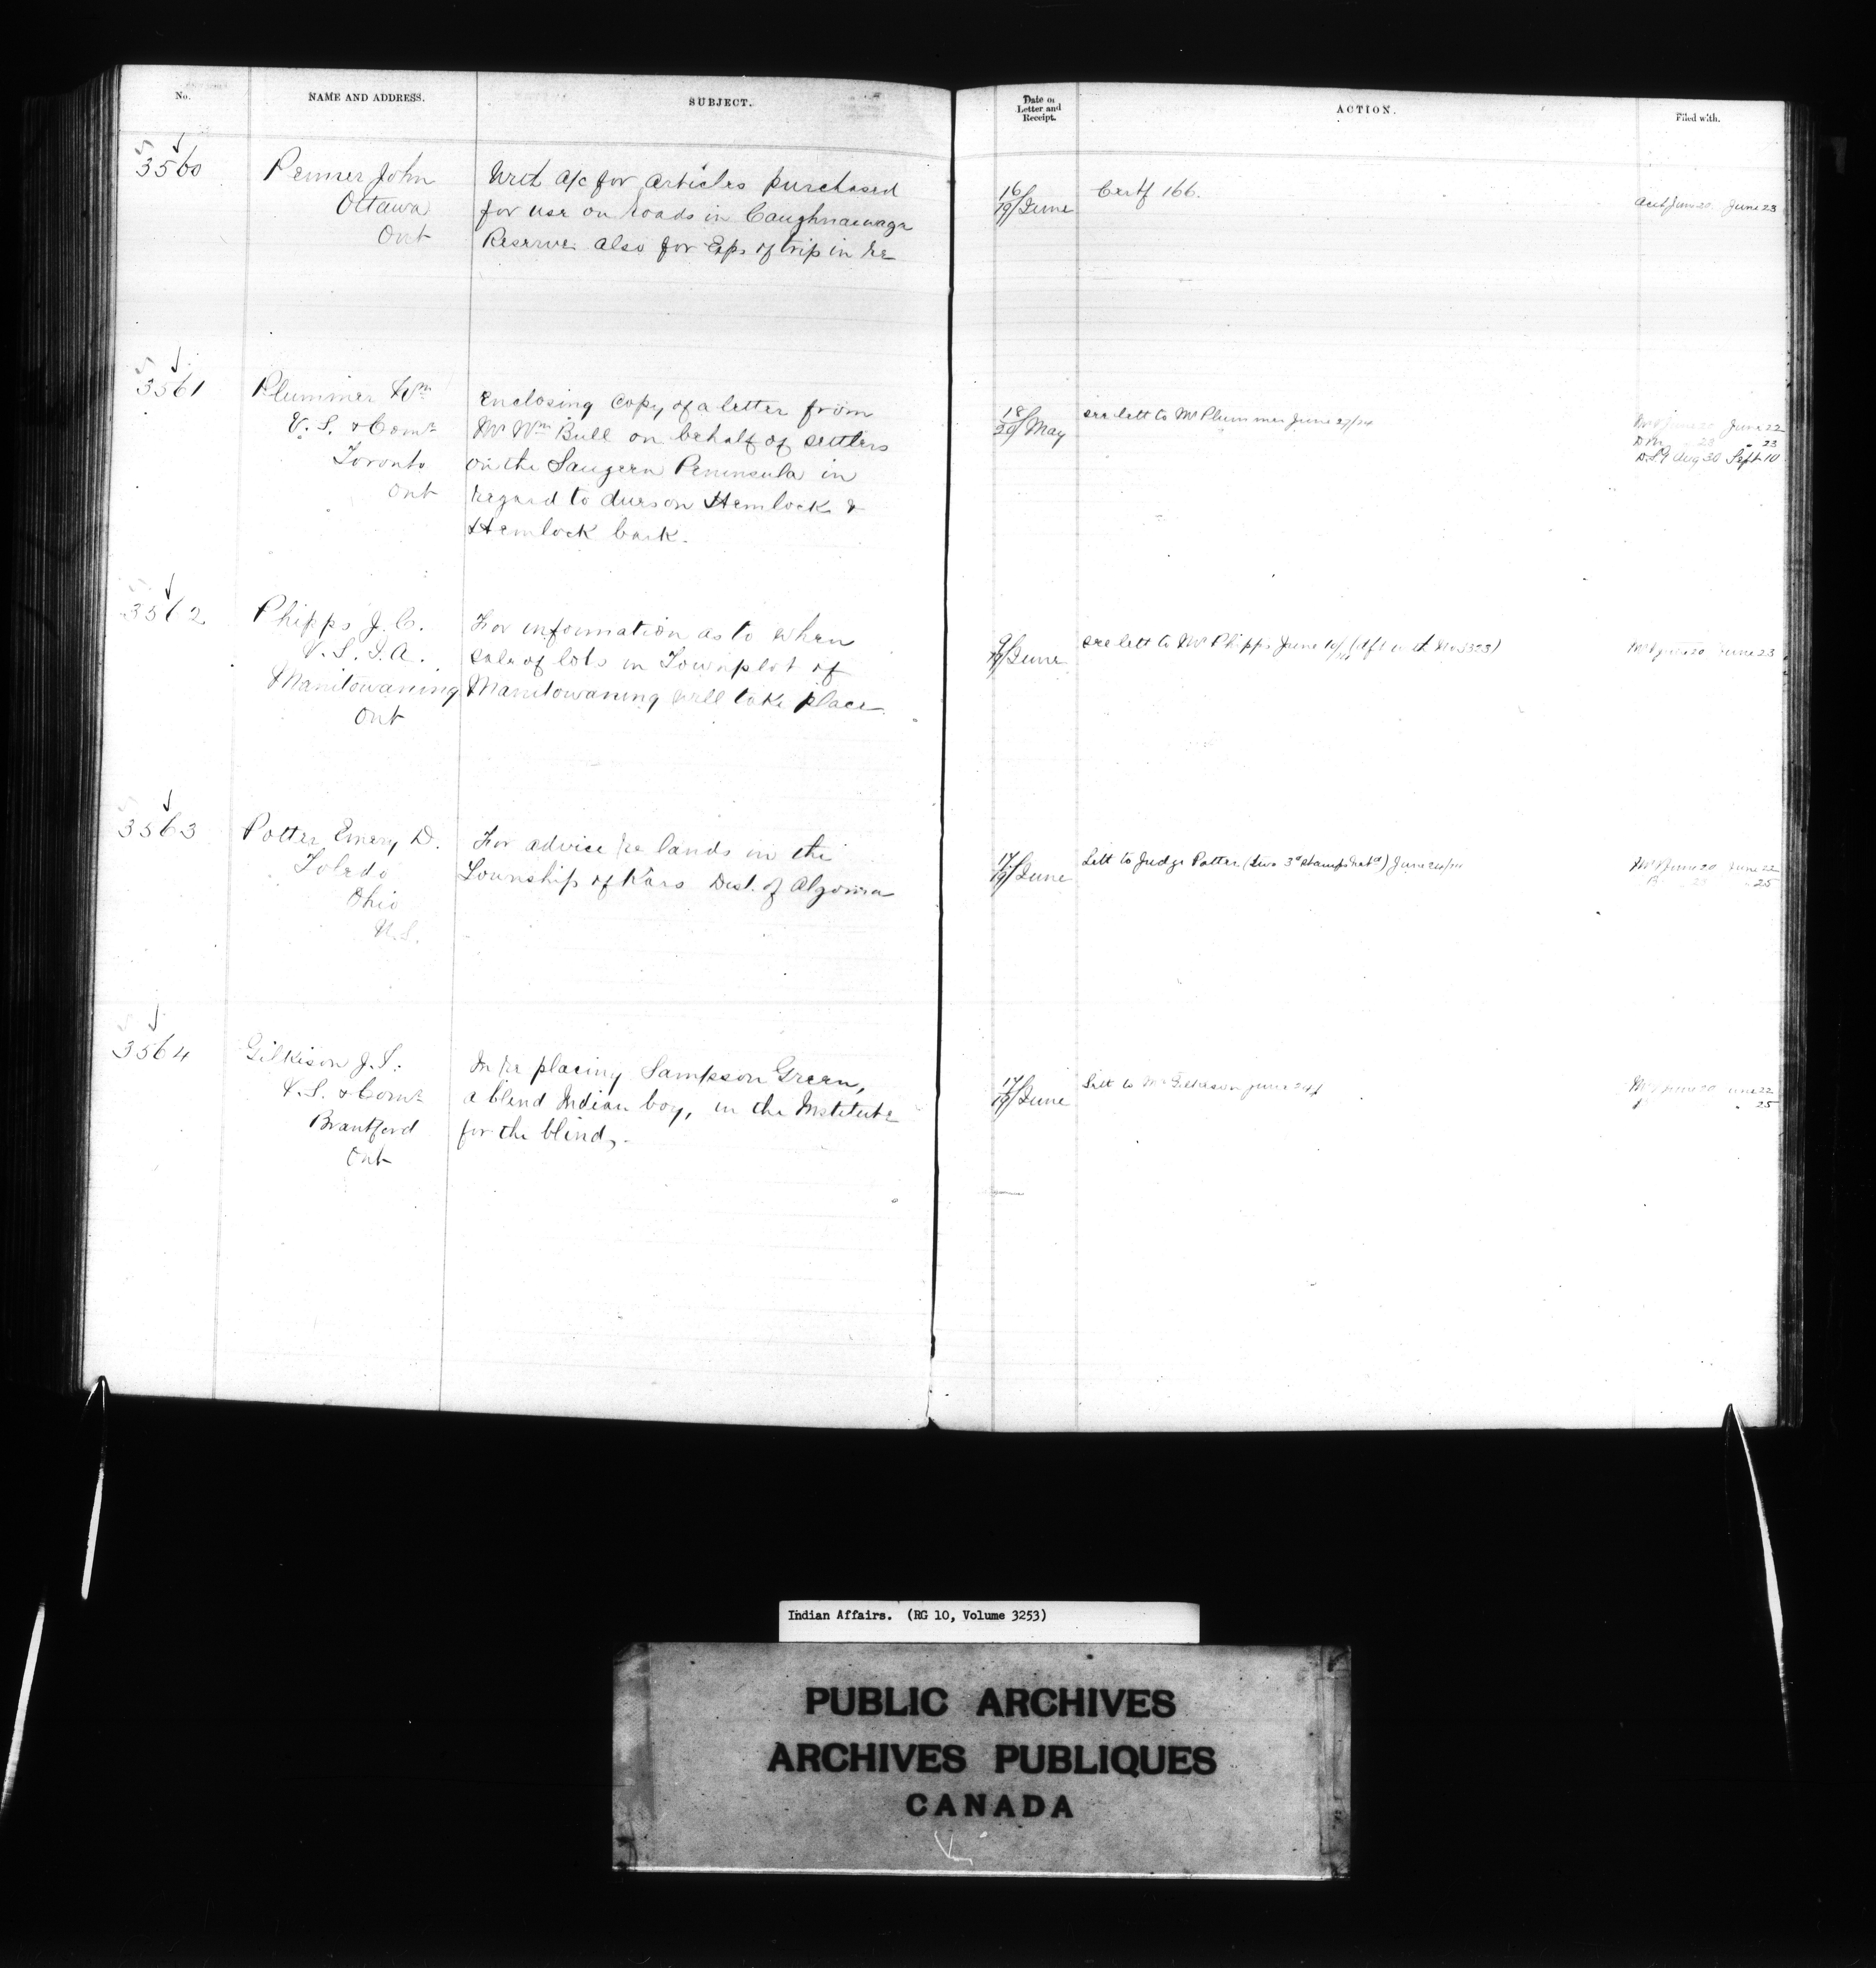 No.
NAME AND ADDRESS.
SUBJECT.
Date of
Letter and
Receipt.
ACTION.
Filed with.
3560
Penner John
Ottawa
Ont
With a/c for articles purchased
for use on roads in Caughnawaga
Reserve also for Exps of trip in re
16/19 June
Certf 166.
June 23
3561
Plummer Wm
V. S. & Comr
Toronto
Ont
Enclosing copy of a letter from
Mr Wm Bull on behalf of settlers
on the Saugeen Peninsula in
regard to dues on Hemlock &
Hemlock bark.
18/20 May
see lett to Mr Plummer June 27/74
June 20 June 22
23 " 23
Aug 30 Sept 10
3562
Phipps J. C.
V. S. I. A.
Manitowaning
Ont
For information as to when
sale of lots in Townplot of
Manitowaning will take place
9/19 June
see lett to Mr Phipps June
June 20 June 23
3563
Potter Emery D.
Toledo
Ohio
U.S.
For advice re lands in the
Township of Kars Dist. of Algoma
17/19 June
Lett to Judge Potter (two 3d stamps retd) June 24/74
June 20 June 22
25
3564
Gilkison J. T.
V. S. & Comr
Brantford
Ont
In re placing Sampson Green,
a blind Indian boy, in the Institute
for the blind,
17/19 June
Lett to Mr Gilkison June 24
June 20 June 22
" 25
Indian Affairs. (RG 10, Volume 3253)
PUBLIC ARCHIVES
ARCHIVES PUBLIQUES
CANADA